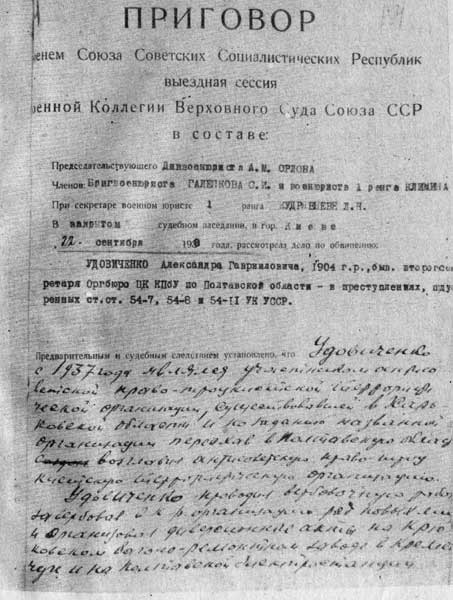 ПРИГОВОР
менем Союза Советских Социалистических Республик
выездная сессия
оенной Коллегии Верховного Суда Союза ССР
в составе:
Председательствующего Диввоенюриста А.М. ОРЛОВА
Членов: Бригвоенюриста ГАЛЕНКОВА С.И. и военюриста 1 ранга КЛИМИНА
При секретаре военном юристе 1 ранга КУДРЯВЦЕВЕ Л.Н.
В закрытом судебном заседании, в гор. Киеве
22 сентября 1938 года, рассмотрела дело по обвинению:
УДОВИЧЕНКО Александра Гавриловича, 1904 г.р., быв. второгосек
ретаря Оргбюро ЦК КПбУ по Полтавской области - в преступлениях, пдус
ренных ст.ст. 54-7, 54-8 и 54-II УК УССР.
Предварительным и судебным следствием установлено, что Удовиченко
с 1937 года являлся участником антисо
ветской право-троцкистской террористи
ческой организации, существовавшей в Харь
ковской области и по заданию названной
организации переехав в Полтавскую
возглавил антисоветскую право-троц
кистскую террористическую организацию.
Удовиченко проводил вербовочную работу
завербовав в к.р. организацию ряд новых лиц
и организовал диверсионные акты на Крю
ковском вагоно-ремонтном заводе в Кремен
чуге и на Полтавской электростанции